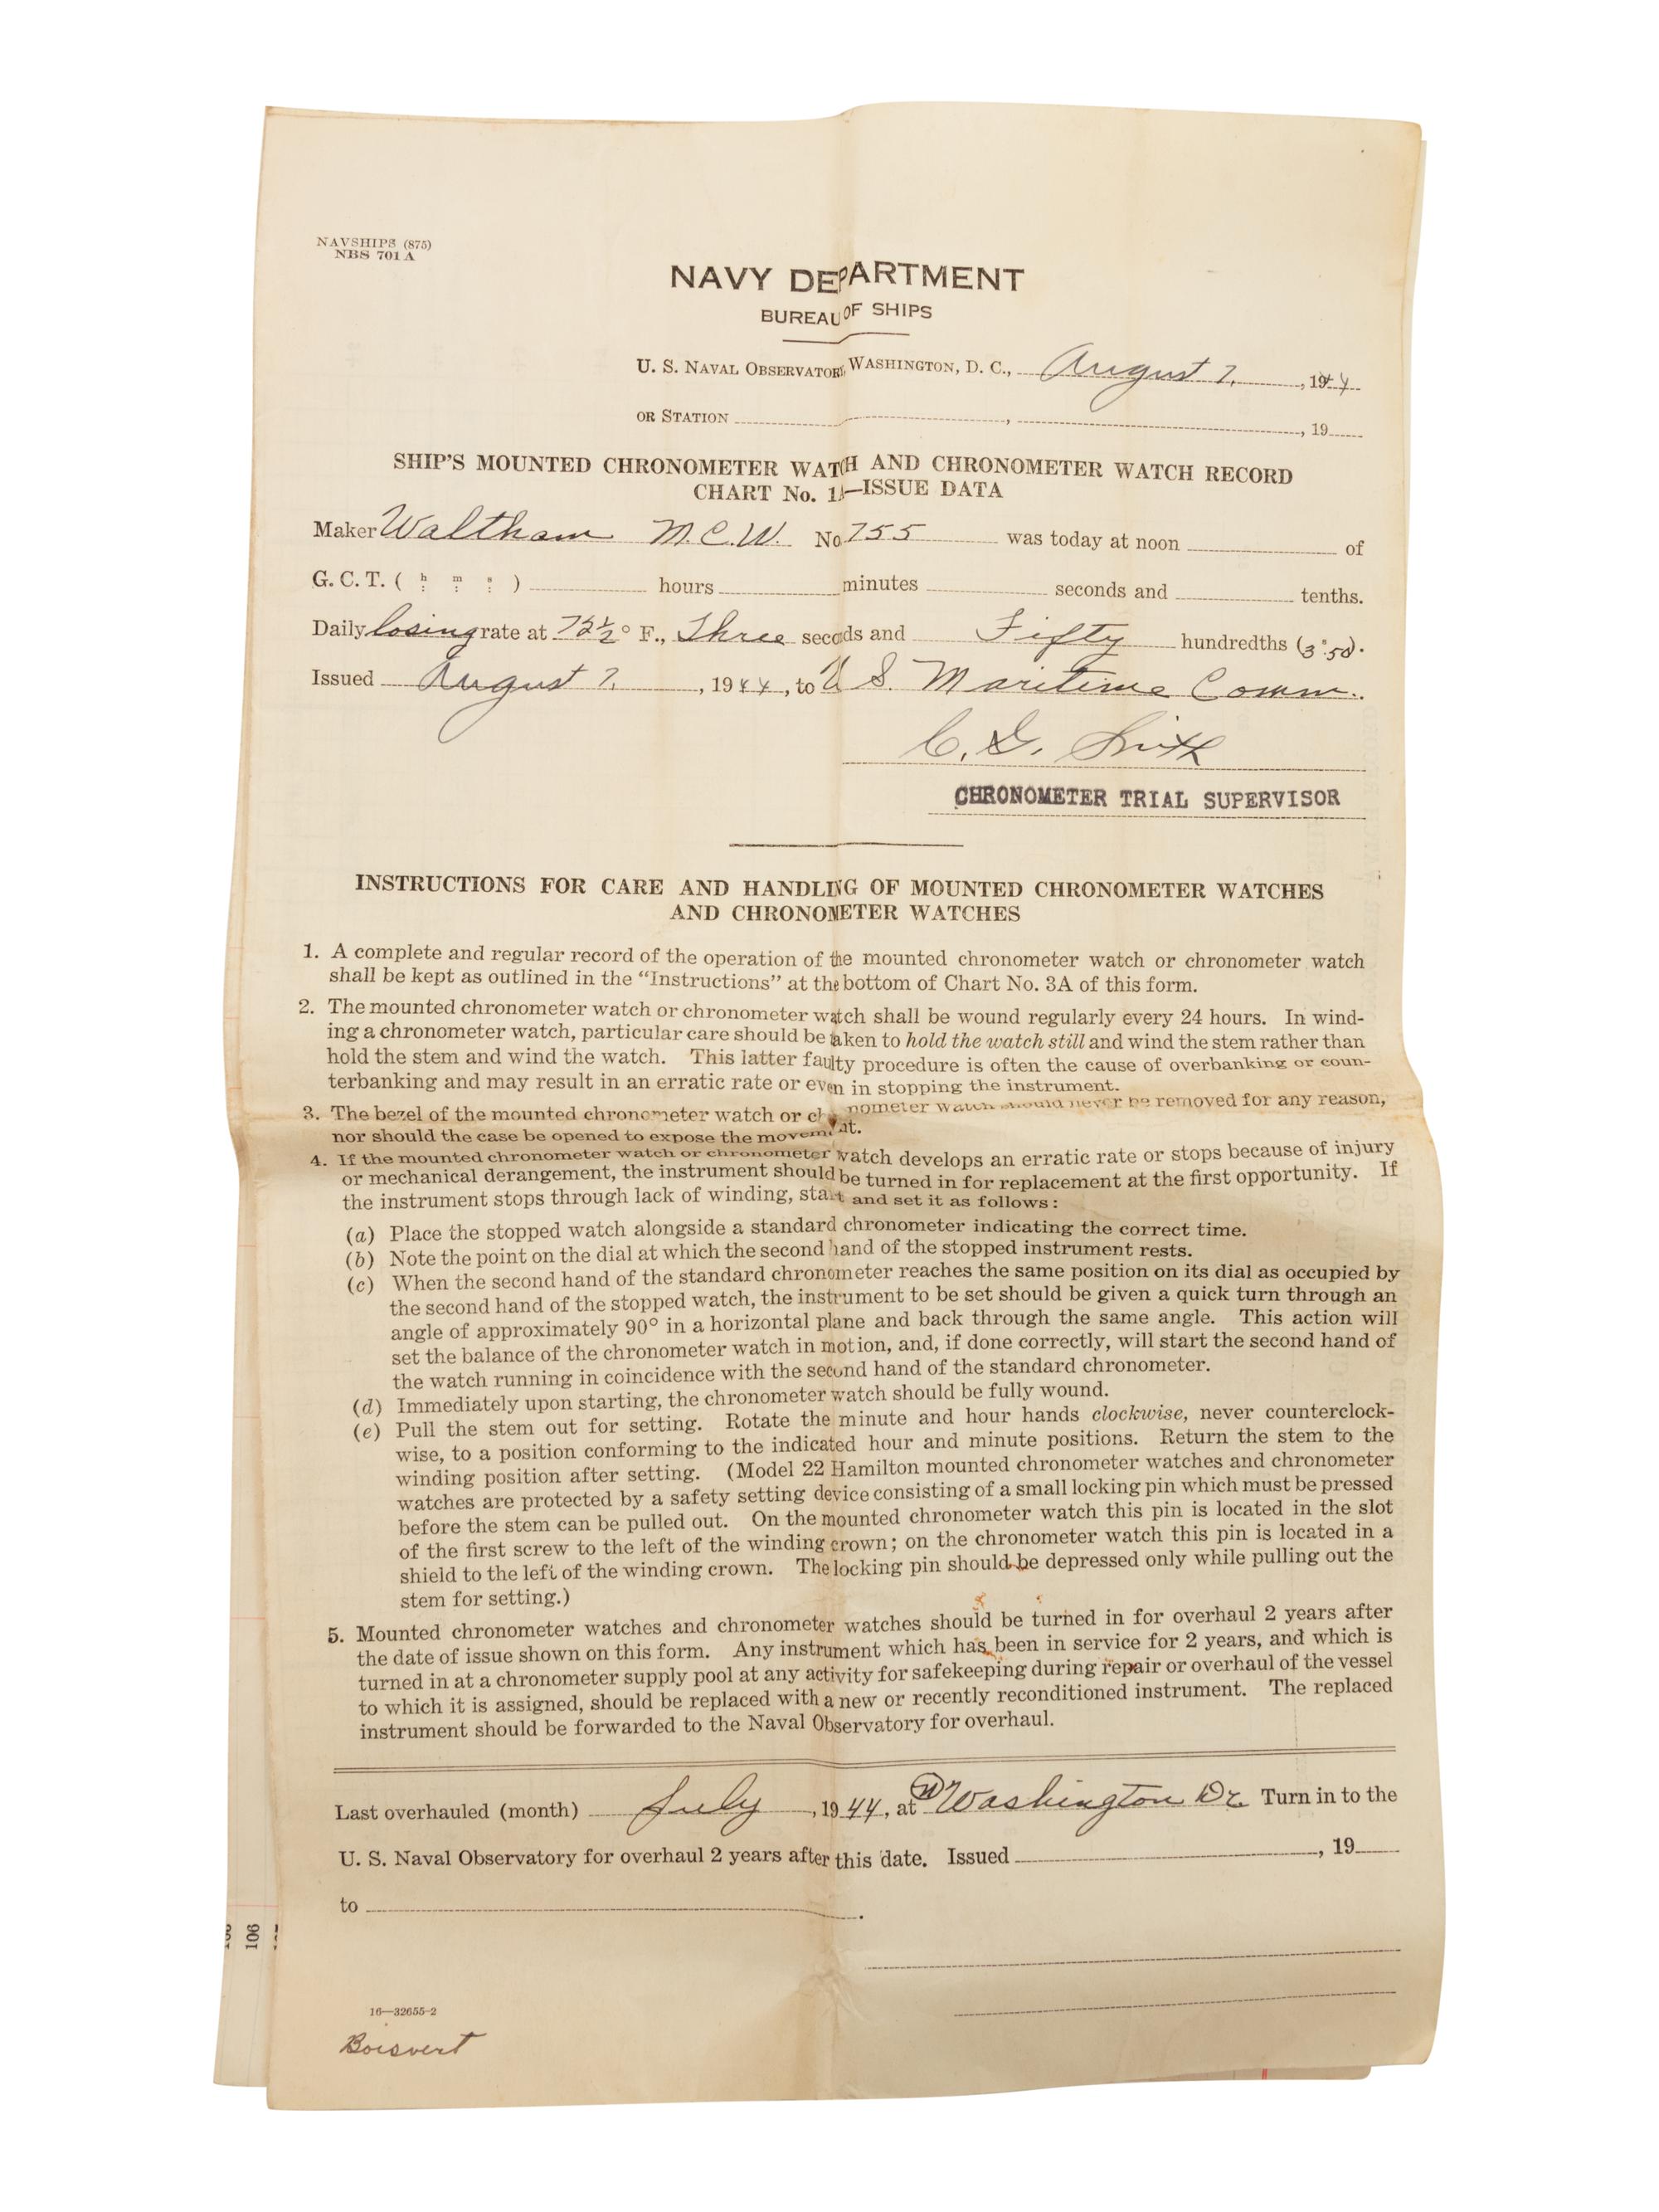 NAVSHIPS (875)
NBS 701 A
NAVY DEPARTMENT
BUREAU OF SHIPS
U. S. NAVAL OBSERVATORY, WASHINGTON, D. C., August 7, , 1944
OR STATION , , 19
SHIP'S MOUNTED CHRONOMETER WATCH AND CHRONOMETER WATCH RECORD
CHART No. 1A—ISSUE DATA
Maker Waltham M.C.W. No 755 was today at noon of
G. C. T. ( h : m : s : ) hours minutes seconds and tenths.
Daily losing rate at 72½° F., Three seconds and Fifty hundredths (3.50).
Issued August 7, , 1944, to U S. Maritime Comm.
C. G. Smith
CHRONOMETER TRIAL SUPERVISOR
INSTRUCTIONS FOR CARE AND HANDLING OF MOUNTED CHRONOMETER WATCHES
AND CHRONOMETER WATCHES
1. A complete and regular record of the operation of the mounted chronometer watch or chronometer watch
shall be kept as outlined in the "Instructions" at the bottom of Chart No. 3A of this form.
2. The mounted chronometer watch or chronometer watch shall be wound regularly every 24 hours. In wind-
ing a chronometer watch, particular care should be taken to hold the watch still and wind the stem rather than
hold the stem and wind the watch. This latter faulty procedure is often the cause of overbanking or coun-
terbanking and may result in an erratic rate or even in stopping the instrument.
3. The bezel of the mounted chronometer watch or chronometer watch should never be removed for any reason,
nor should the case be opened to expose the movement.
4. If the mounted chronometer watch or chronometer watch develops an erratic rate or stops because of injury
or mechanical derangement, the instrument should be turned in for replacement at the first opportunity. If
the instrument stops through lack of winding, start and set it as follows:
(a) Place the stopped watch alongside a standard chronometer indicating the correct time.
(b) Note the point on the dial at which the second hand of the stopped instrument rests.
(c) When the second hand of the standard chronometer reaches the same position on its dial as occupied by
the second hand of the stopped watch, the instrument to be set should be given a quick turn through an
angle of approximately 90° in a horizontal plane and back through the same angle. This action will
set the balance of the chronometer watch in motion, and, if done correctly, will start the second hand of
the watch running in coincidence with the second hand of the standard chronometer.
(d) Immediately upon starting, the chronometer watch should be fully wound.
(e) Pull the stem out for setting. Rotate the minute and hour hands clockwise, never counterclock-
wise, to a position conforming to the indicated hour and minute positions. Return the stem to the
winding position after setting. (Model 22 Hamilton mounted chronometer watches and chronometer
watches are protected by a safety setting device consisting of a small locking pin which must be pressed
before the stem can be pulled out. On the mounted chronometer watch this pin is located in the slot
of the first screw to the left of the winding crown; on the chronometer watch this pin is located in a
shield to the left of the winding crown. The locking pin should be depressed only while pulling out the
stem for setting.)
5. Mounted chronometer watches and chronometer watches should be turned in for overhaul 2 years after
the date of issue shown on this form. Any instrument which has been in service for 2 years, and which is
turned in at a chronometer supply pool at any activity for safekeeping during repair or overhaul of the vessel
to which it is assigned, should be replaced with a new or recently reconditioned instrument. The replaced
instrument should be forwarded to the Naval Observatory for overhaul.
Last overhauled (month) July , 1944, at Washington Dc Turn in to the
U. S. Naval Observatory for overhaul 2 years after this date. Issued , 19
to .
106
16—32655-2
Boisvert